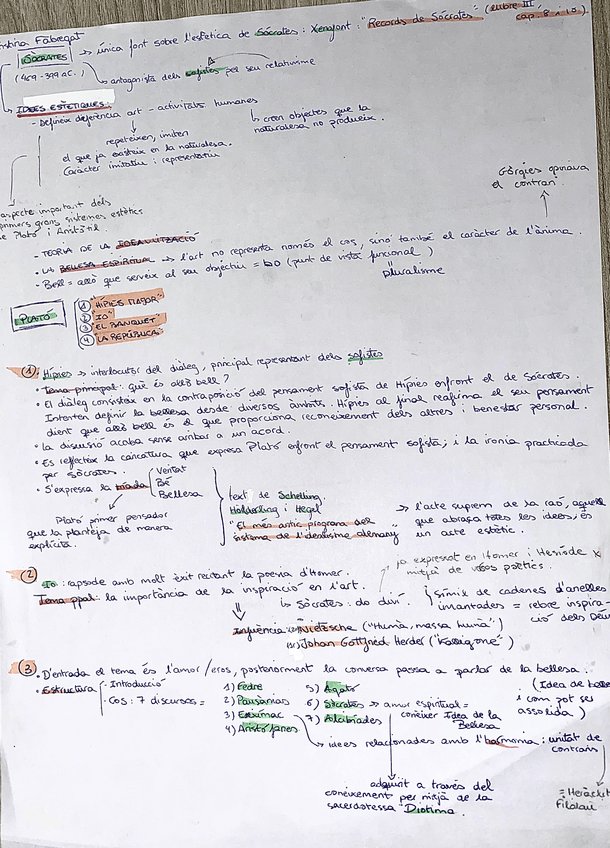 Cristina Fàbregat
SÒCRATES → única font sobre l'estètica de Sòcrates: Xenofont: "Records de Sòcrates" (llibre III cap. 8 i 10)
(469-399 AC.) → antagonista dels sofistes pel seu relativisme
IDEES ESTÈTIQUES:
- Defineix diferència art - activitats humanes
repeteixen, imiten
el que ja existeix en la naturalesa.
Caràcter imitatiu i representatiu
↳ creen objectes que la
naturalesa no produeix.
aspecte important dels
primers grans sistemes estètics
de Plató i Aristòtil.
Gòrgies opinava
el contrari.
- TEORIA DE LA IDEALITZACIÓ
- LA BELLESA ESPIRITUAL → l'art no representa només el cos, sinó també el caràcter de l'ànima.
- Bell = allò que serveix al seu objectiu = bo (punt de vista funcional)
pluralisme
PLATÓ
1 "HÍPIES MAJOR"
2 "IO"
3 "EL BANQUET"
4 "LA REPÚBLICA"
1. Hípies → interlocutor del diàleg, principal representant dels sofistes
• Tema principal: què és allò bell?
• El diàleg consisteix en la contraposició del pensament sofista de Hípies enfront el de Sòcrates.
Intenten definir la bellesa desde diversos àmbits. Hípies al final reafirma el seu pensament
dient que allò bell és el que proporciona reconeixement dels altres i benestar personal.
• La discusió acaba sense arribar a un acord.
• Es reflecteix la caricatura que expresa Plató enfront el pensament sofista; i la ironia practicada
per Sòcrates.
• S'expressa la tríada
Veritat
Bé
Bellesa
Plató primer pensador
que la planteja de manera
explícita.
text de Schelling,
Hölderling i Hegel
"El més antic programa del
sistema de l'idealisme alemany"
→ l'acte suprem de la raó, aquell
que abraça totes les idees, és
un acte estètic.
2 Io: rapsode amb molt èxit recitant la poesia d'Homer.
ja expresat en Homer i Hesíode x
mitjà de versos poètics.
Tema ppal: la importància de la inspiració en l'art.
↳ Sòcrates: do diví.
símil de cadenes d'anelles
imantades = rebre inspira-
ció dels Déus
Influència → Nietzsche ("Humà, massa humà")
↳ Johan Gottfried Herder ("Kalligone")
3. D'entrada el tema és l'amor/eros, posteriorment la conversa passa a parlar de la bellesa.
• Estructura
- Introducció
- Cos: 7 discursos =
1) Fedre
2) Pausanias
3) Erixímac
4) Aristòfanes
5) Agató
6) Sòcrates → amor espiritual =
conèixer Idea de la
Bellesa
7) Alcibíades
(Idea de bellesa
i com pot ser
assolida)
→ idees relacionades amb l'harmonia: unitat de
contraris
adquirit a través del
coneixement per mitjà de la
sacerdotessa Diotima.
= Heràclit
Filolau